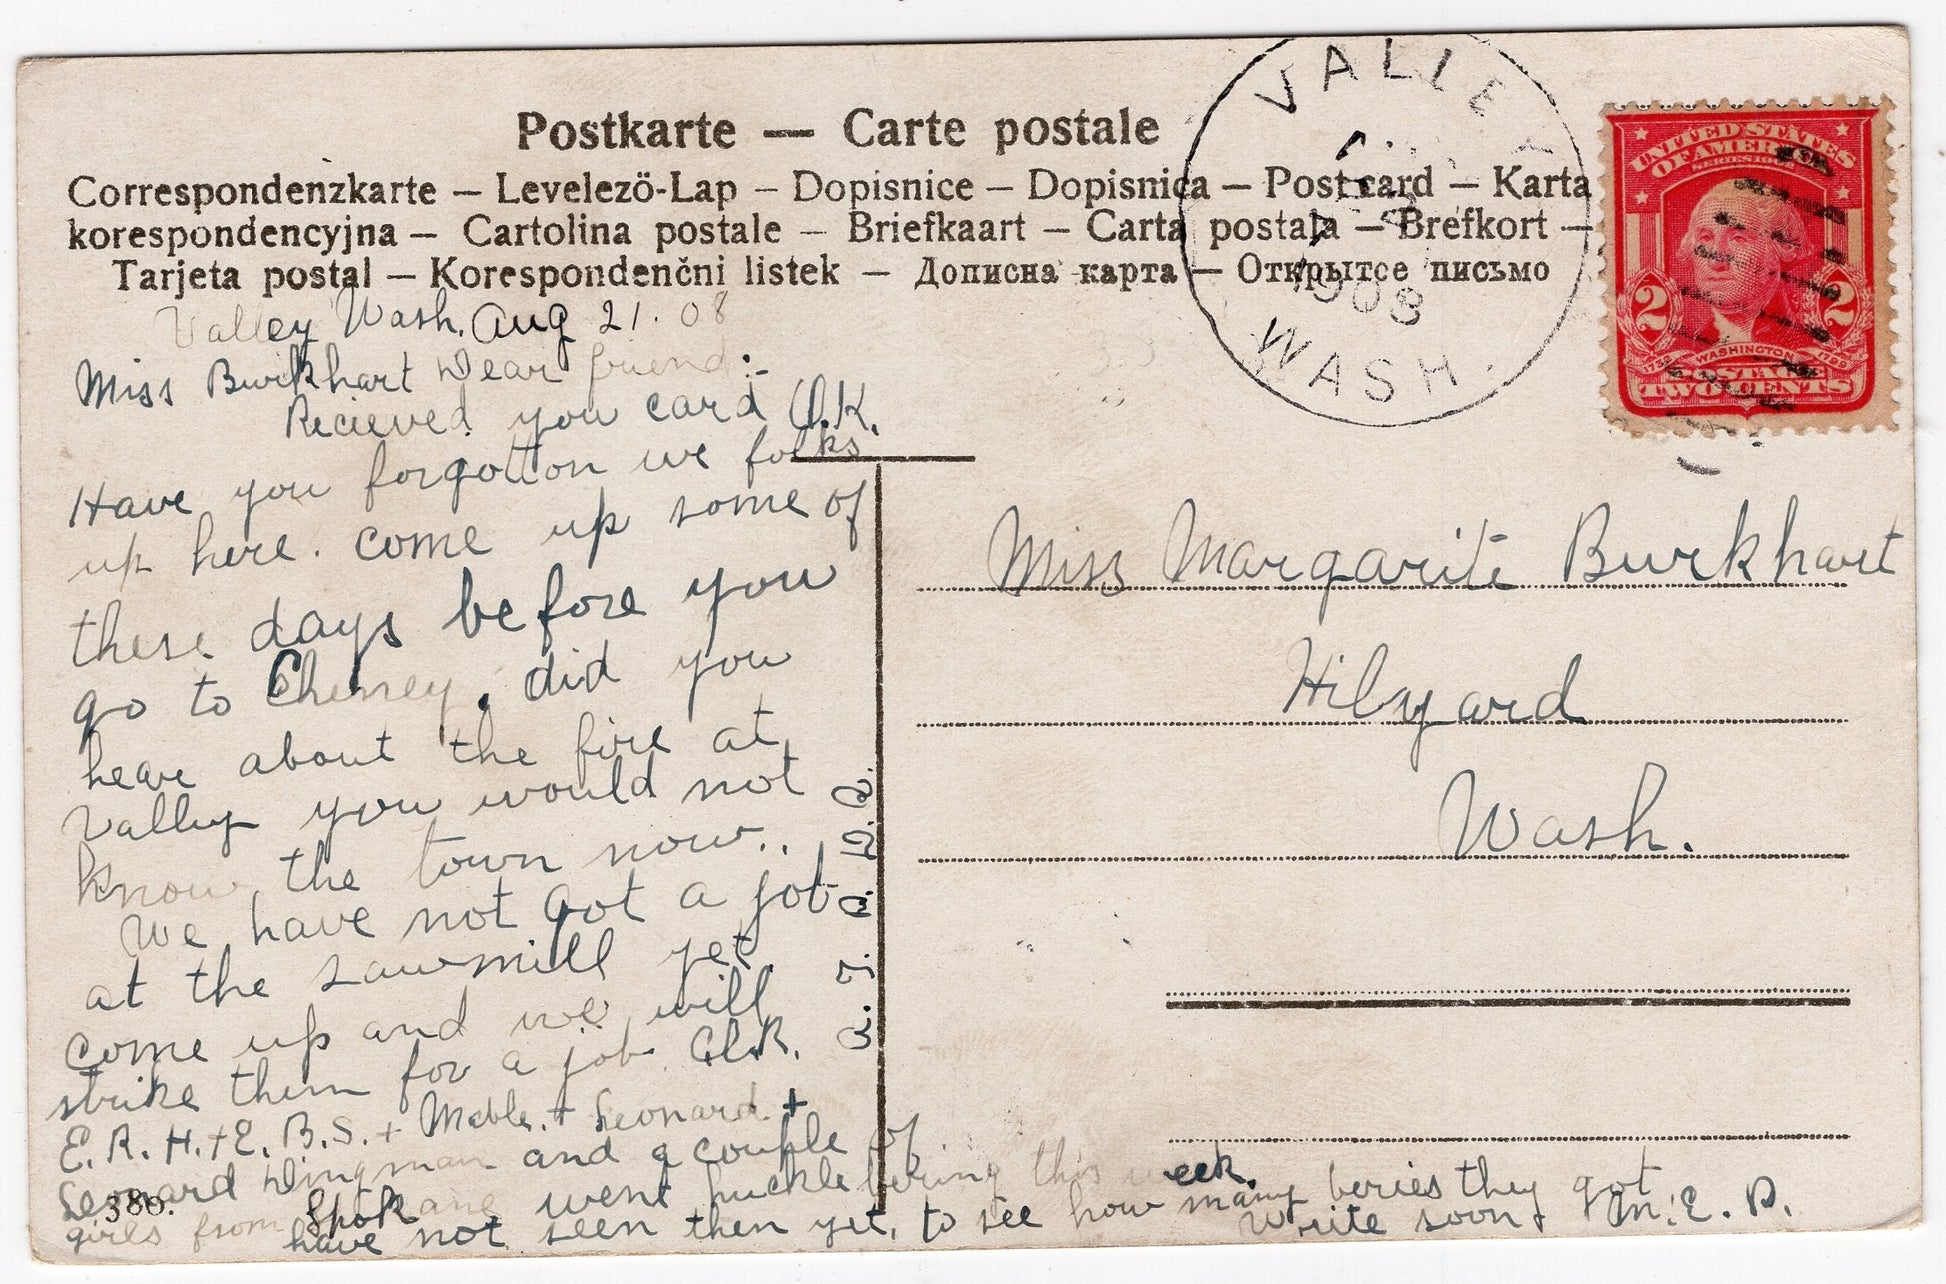 Postkarte — Carte postale
Correspondenzkarte – Levelező-Lap – Dopisnice – Dopisnica – Post card – Karta
korespondencyjna – Cartolina postale – Briefkaart – Carta postala – Brefkort –
Tarjeta postal – Korespondenčni listek – Дописна карта – Открытое письмо
VALLEY
1908
WASH.
UNITED STATES
OF AMERICA
SERIES 1902
2 2
1732 WASHINGTON 1799
POSTAGE
TWO CENTS
Valley Wash. Aug 21. 08
Miss Burkhart Dear friend:-
Recieved you card O.K.
Have you forgotton we folks
up here. come up some of
these days before you
go to Cheney. did you
hear about the fire at
Valley you would not
know the town now..
We have not got a job
at the sawmill yet
come up and we will
strike them for a job.
E.R.H.+E.B.S.+ Mable.+ Leonard.+
Leonard Dingman and a couple of
girls from Spokane went huckle bering this week.
have not seen then yet, to see how many beries they got
write soon M.E.P.
380.
Miss Margarite Burkhart
Hilyard
Wash.